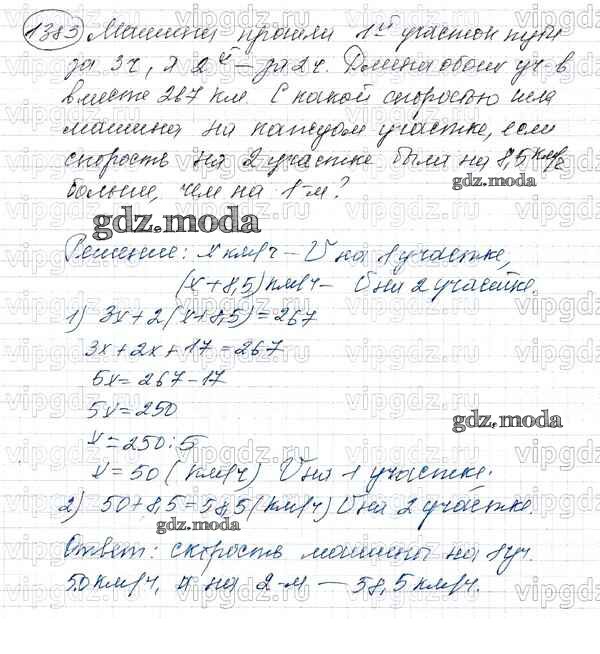 1383 Машина прошли 1й участок пути
за 3ч, а 2й — за 2ч. Длина обоих уч-в
вместе 267 км. С какой скоростью шла
машина на каждом участке, если
скорость на 2 участке была на 8,5 км/ч
больше, чем на 1-м?
gdz.moda
gdz.moda
Решение: x км/ч — V на 1 участке,
(x+8,5) км/ч — V на 2 участке.
1) 3x+2(x+8,5)=267
3x+2x+17=267
5x=267-17
5x=250
gdz.moda
x=250:5
x=50 (км/ч) V на 1 участке.
2) 50+8,5=58,5 (км/ч) V на 2 участке.
gdz.moda
Ответ: скорость машины на 1 уч.
50 км/ч, а на 2-м — 58,5 км/ч.
vipgdz.ru